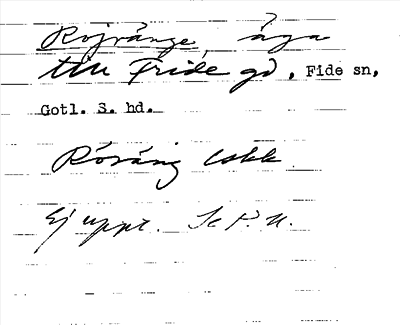 Rojränge, äga
till Fride gd, Fide sn,
Gotl. S. hd.
Röräng
Ej uppt.